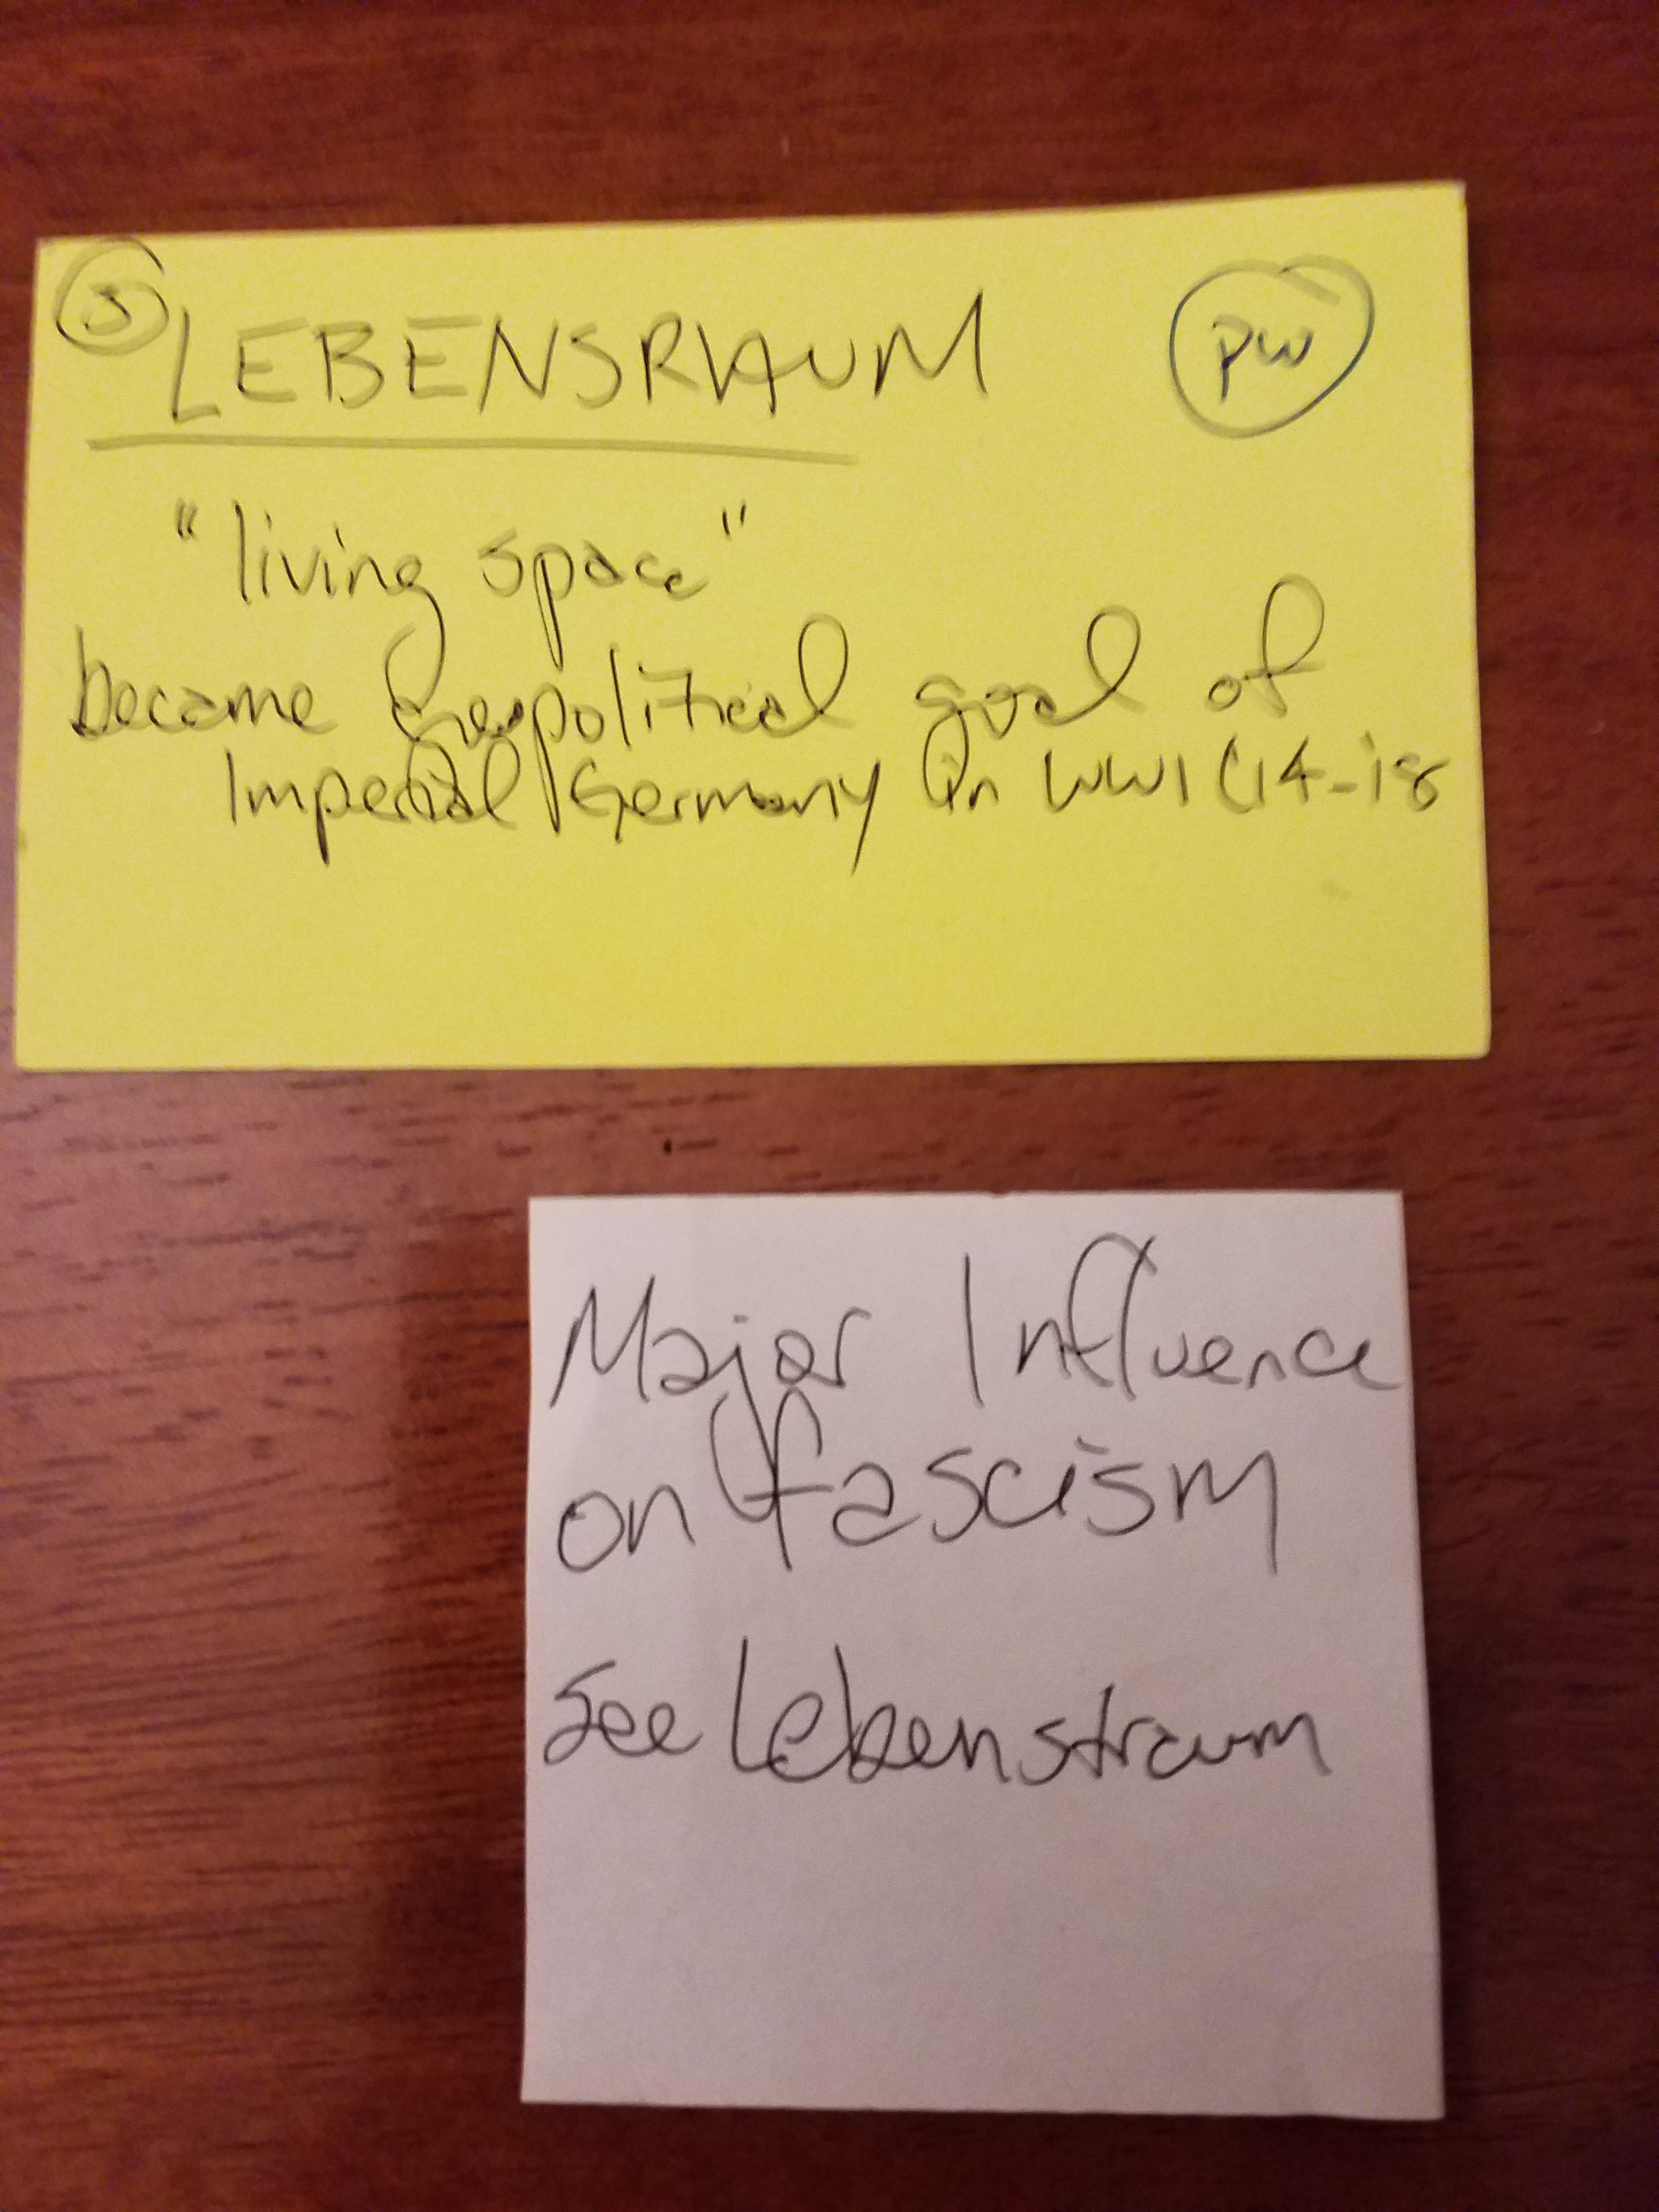 LEBENSRAUM
PW
"living space"
became geopolitical goal of
Imperial Germany in WWI (14-18
Major Influence
on fascism
See Lebenstraum